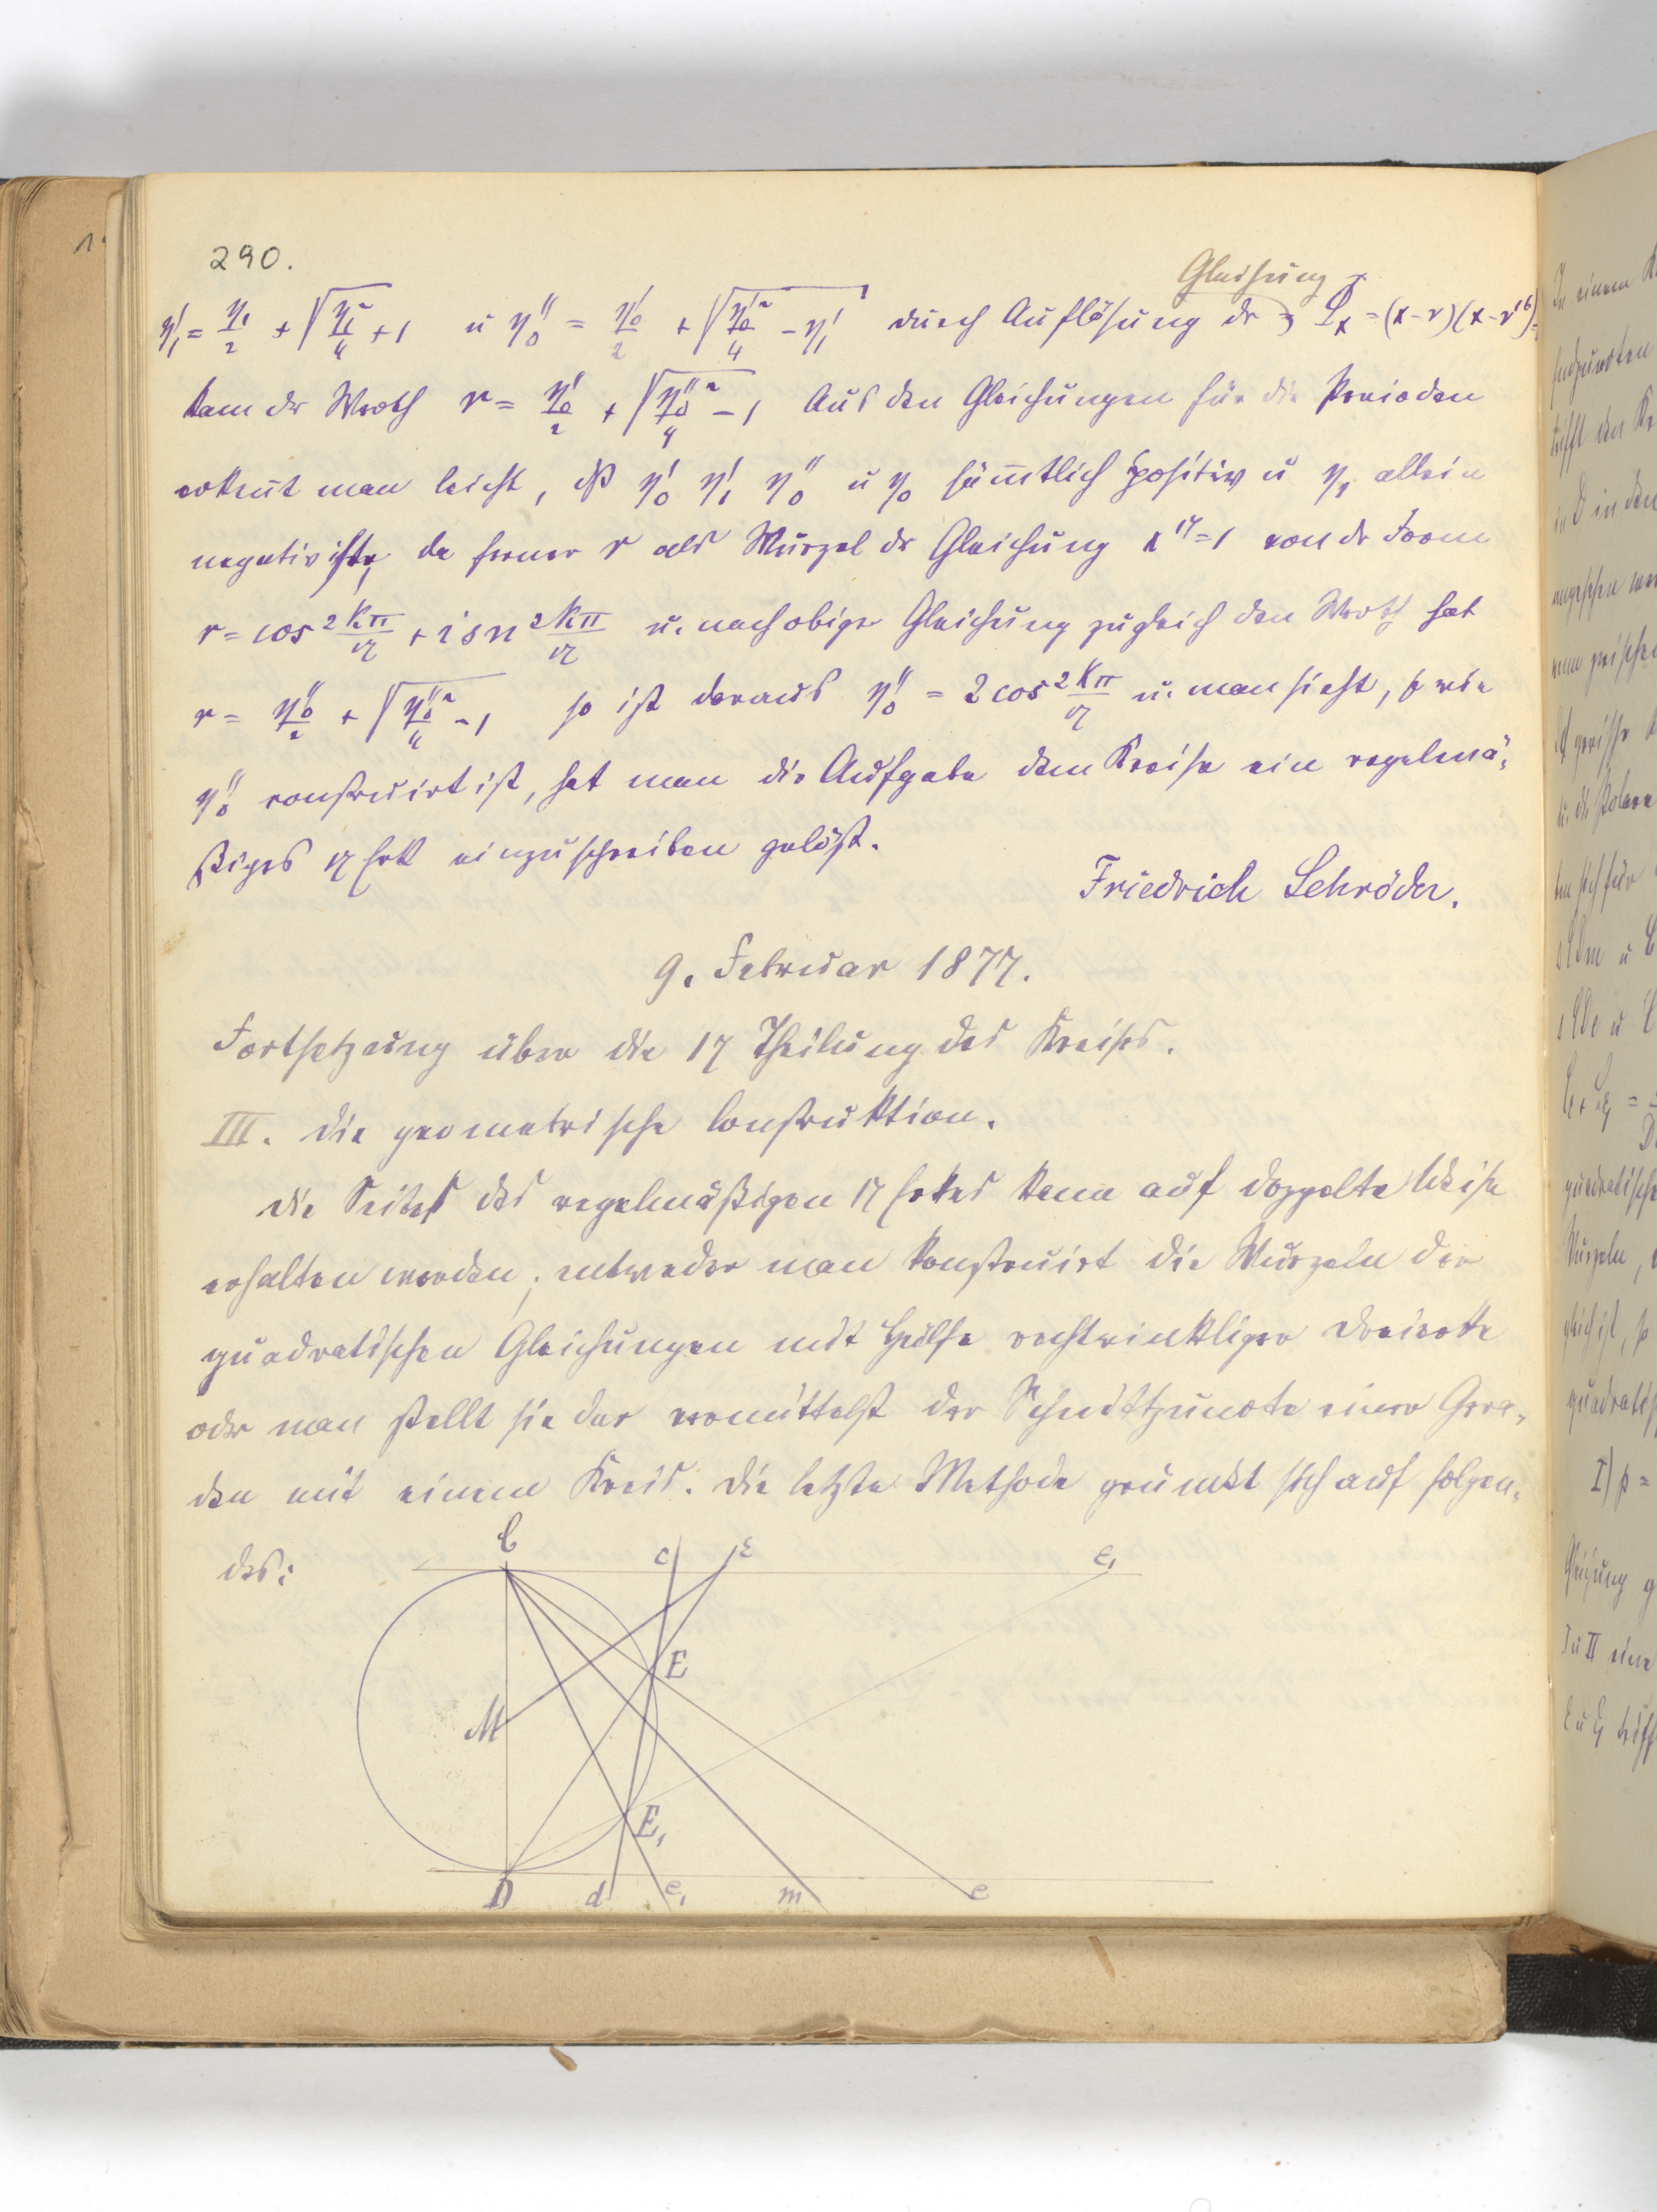 290.
Gleichung
η'₁ = η₁/2 + √(η₁²/4 + 1) u η''₀ = η'₀/2 + √(η'₀²/4 − η'₁) durch Auflösung dr Lₓ = (x−r)(x−r¹⁶)=
kam der Werth r = η''₀/2 + √(η''₀²/4 − 1) Aus den Gleichungen für die Perioden
erkent man leicht, dß η'₀ η'₁ η''₀ u η₀ sämtlich positiv u η₁ allein
negativ ist, da ferner r als Wurzel dr Gleichung x¹⁷=1 von dr Form
r = cos 2kπ/17 + i sn 2kπ/17 u. nach obiger Gleichung zugleich den Werth hat
r = η''₀/2 + √(η''₀²/4 − 1) so ist daraus η''₀ = 2 cos 2kπ/17 u. man sieht, so wie
η''₀ construirt ist, hat man die Aufgabe dem Kreise ein regelmä-
ßiges 17 Eck einzuschreiben gelöst.
Friedrich Schröder.
9. Februar 1877.
Fortsetzung über die 17 Theilung des Kreises.
III. Die geometrische Construktion.
Die Seite des regelmäßigen 17 Eckes kann auf doppelte Weise
erhalten werden; entweder man konstruirt die Wurzeln der
quadratischen Gleichungen mit Hülfe rechtwinkliger Dreiecke
oder man stellt sie dar vermittelst der Schnittpuncte einer Gera-
den mit einem Kreis. Die letzte Methode gründet sich auf folgen-
des:
C c ε ε₁
E
M
E₁
D d e₁ m e